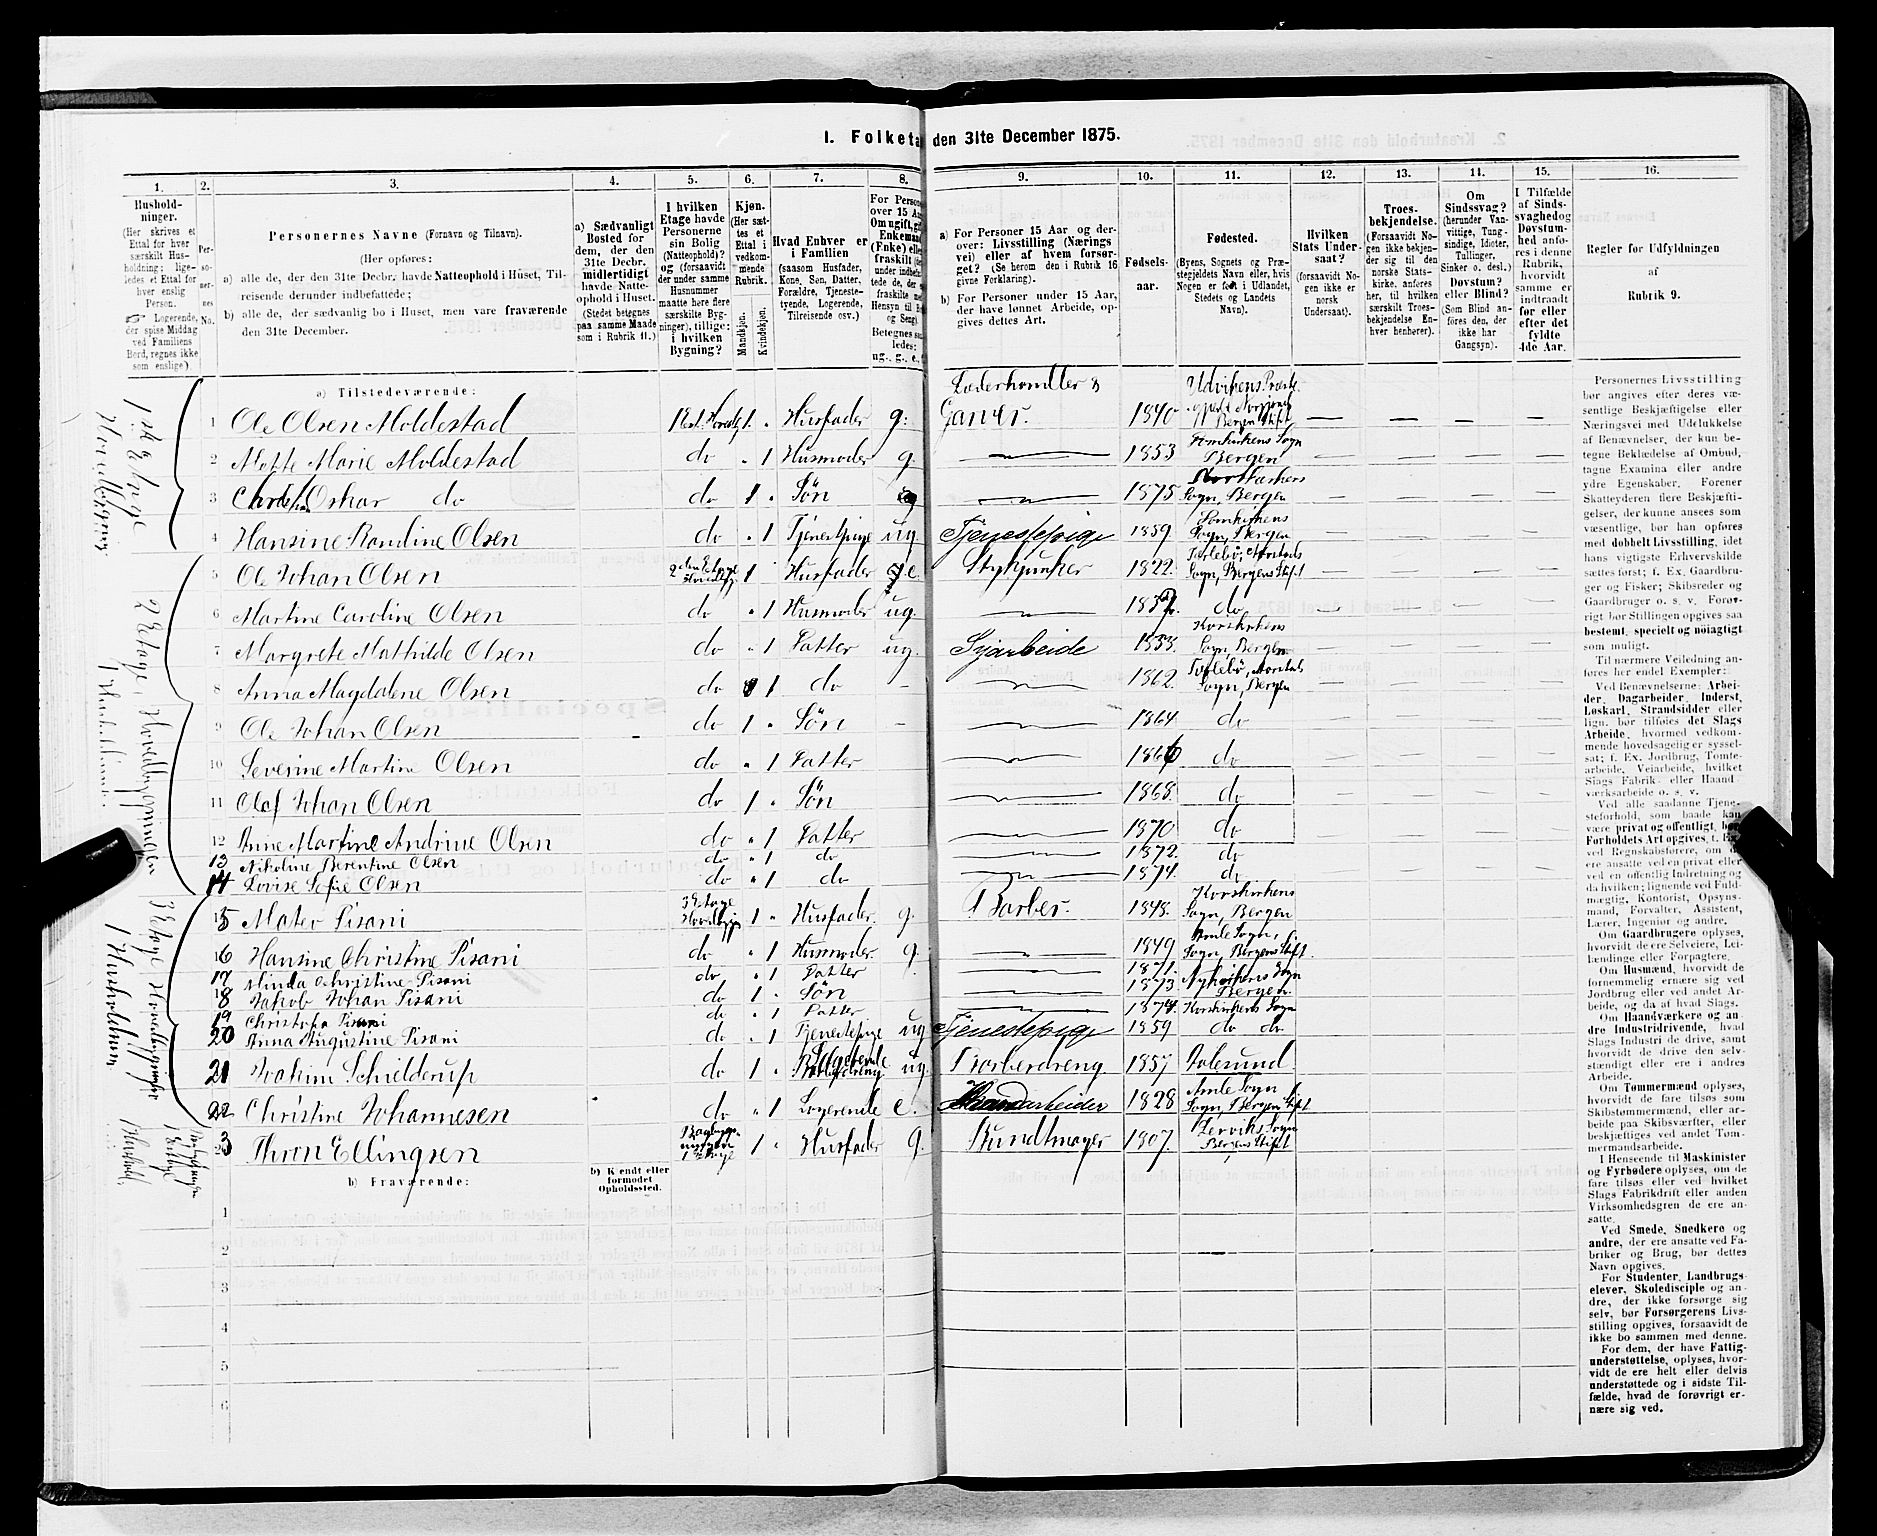 I. Folketæ den 31te December 1875.
1. 2. 3. 4. 5. 6. 7. 8. 9. 10. 11. 12. 13. 14. 15. 16.
Husholdninger. (Her skrives et Ettal for hver særskilt Husholdning; ligeledes et Ettal for hver enslig Person. Logerende, der spise Middag ved Familiens Bord, regnes ikke som enslige).
Personernes No.
Personernes Navne (Fornavn og Tilnavn).
(Her opføres:
a) alle de, der den 31te Decbr. havde Natteophold i Huset, Tilreisende derunder indbefattede;
b) alle de, der sædvanlig bo i Huset, men vare fraværende den 31te December.
a) Sædvanligt Bosted for dem, der den 31te Decbr. midlertidigt havde Natteophold i Huset. (Stedet betegnes paa samme Maade som i Rubrik 11.)
I hvilken Etage havde Personerne sin Bolig (Natteophold)? og (forsaavidt der under samme Husnummer maatte høre flere særskilte Bygninger), tillige: i hvilken Bygning?
Kjøn. (Her sættes et Ettal i vedkommende Rubrik.
Mandkjøn. Kvindekjøn.
Hvad Enhver er i Familien (saasom Husfader, Kone, Søn, Datter, Forældre, Tjenestetyende, Logerende, Tilreisende osv.)
For Persone over 15 Aar Om ugift, gi Enkemand (Enke) elle fraskilt
Betegnes saaledes: ug., g., e., f
a) For Personer 15 Aar og derover: Livsstilling (Nærings vei) eller af hvem forsørget? (Se herom den i Rubrik 16 givne Forklaring).
b) For Personer under 15 Aar, der have lønnet Arbeide, opgives dettes Art.
Fødselsaar.
Fødested. (Byens, Sognets og Præstegjeldets Navn eller, hvis Nogen er født i Udlandet, Stedets og Landets Navn).
Hvilken Stats Undersaat? (forsaavidt Nogen ikke er norsk Undersaat).
Troesbekjendelse. (Forsaavidt Nogen ikke bekjender sig til den norske Statskirke, anføres her, til hvilken særskilt Troesbekjendelse Enhver henhører).
Om Sindssvag? (herunder Vanvittige, Tungsindige, Idioter, Tullinger, Sinker o. desl.) Døvstum? eller Blind? (Som Blind anføres den, der ikke har Gangsyn).
I Tilfælde af Sindssvaghed og Døvstumhed anføres i denne Rubrik, hvorvidt samme er indtraadt før eller efter det fyldte 4de Aar.
Regler for Udfyldningen af Rubrik 9.
a) Tilstedeværende:
1 Ole Olsen Moldestad 1 Husfader g: Læderhandler & Garver. 1840 Bergen Stift
2 Mette Marie Moldestad do 1 Husmoder g. 1853 Domkirkens Sogn Bergen
3 Christian Oskar do do 1 Søn 1875 Sogn, Bergen
4 Hansine Randine Olsen do 1 Tjenestepige ug Tjenestepige 1859. Domkirkens Sogn, Bergen
5 Ole Johan Olsen 2den Etage 1 Husfader e. Stykjunker 1822. Sogn, Bergens Stift
6 Martine Caroline Olsen do 1 Husmoder ug do
7 Margrete Mathilde Olsen do 1 Datter ug. Syarbeide 1853. Korskirkens Sogn, Bergen
8 Anna Magdalene Olsen do 1 do 1862. Sogn, Bergen
9 Ole Johan Olsen do 1 Søn 1864 do
10 Severine Martine Olsen do 1 Datter 1866 do
11 Olaf Johan Olsen do 1 Søn 1868. do
12 Anne Martine Andrine Olsen do 1 Datter 1870 do
13 Nikoline Berentine Olsen do 1 do 1872. do
14 Lovise Sofie Olsen do 1 do 1874. do
15 Mateo Pisani 3 Etage Hovedbygn 1 Husfader. g. Barber. 1848. Korskirkens Sogn, Bergen
16 Hansine Christine Pisani do 1 Husmoder. g. 1849 Amle Sogn, Sogn, Bergens Stift
17 Minda Christine Pisani do 1 Datter 1871. Nykirkens Sogn
18 Jakob Johan Pisani do 1 Søn 1873. Bergen.
19 Christofa Pisani do 1 Datter 1874. Korskirkens Sogn
20 Anna Augustine Pisani do 1 Tjenestepige ug Tjenestepige 1859 do do
21 Joakim Schielderup do 1 Logerende ug. Barberdreng 1857 Aalesund
22 Christine Johannesen do 1 Logerende e. Haandarbeider 1828 Amle Sogn Sogn, Bergen Stift
23 Thron Ellingsen 1 Etage 1 Husfader g. Bundtmager 1807. Bergens Stift
b) Kjendt eller formodet Opholdssted.
b) Fraværende:
1
2
3
4
5
6
2 Etage, Hovedbygningen
1 Husholdning.
3 Etage Hovedbygningen
1 Husholdning
Personernes Livsstilling bør angives efter deres væsentlige Beskjæftigelse eller Næringsvei med Udelukkelse af Benævnelser, der kun betegne Beklædelse af Ombud, tagne Examina eller andre ydre Egenskaber. Forener Skatteyderen flere Beskjæftigelser, der kunne ansees som væsentlige, bør han opføres med dobbelt Livsstilling, idet hans vigtigste Erhvervskilde sættes først; f. Ex. Gaardbruger og Fisker; Skibsreder og Gaardbruger o. s. v. Forøvrigt bør Stillingen opgives saa bestemt, specielt og nøiagtigt som muligt.
Til nærmere Veiledning anføres her endel Exempler:
Ved Benævnelserne: Arbeider, Dagarbeider, Inderst, Løskarl, Strandsidder eller lign. bør tilføies det Slags Arbeide, hvormed vedkommende hovedsagelig er sysselsat; f. Ex. Jordbrug, Tomtearbeide, Veiarbeide, hvilket Slags Fabrik- eller Haandværksarbeide o. s. v.
Ved alle saadanne Tjenesteforhold, som baade kan være privat og offentligt, bør Forholdets Art opgives, t. Ex. ved Regnskabsførere, om de ere ansatte ved en privat eller ved en offentlig Indretning og da hvilken; lignende ved Fuldmægtig, Kontorist, Opsynsmand, Forvalter, Assistent, Lærer, Ingeniør og andre.
Om Gaardbrugere oplyses, hvorvidt de ere Selveiere, Leilændinge eller Forpagtere.
Om Husmænd, hvorvidt de fornemmelig ernære sig ved Jordbrug eller ved andet Arbeide, og da af hvad Slags.
Om Haandværkere og andre Industridrivende, hvad Slags Industri de drive, samt hvorvidt de drive den selvstændigt eller ere i andres Arbeide.
Om Tømmermænd oplyses, hvorvidt de fare tilsøs som Skibstømmermænd, eller arbeide paa Skibsværfter, eller beskjæftiges ved andet Tømmermandsarbeide.
I Henseende til Maskinister og Fyrbødere oplyses, om de fare tilsøs eller ved hvilket Slags Fabrikdrift eller anden Virksomhedsgren de ere ansatte.
Ved Smede, Snedkere og andre, der ere ansatte ved Fabriker og Brug, bør dettes Navn opgives.
For Studenter, Landbrugselever, Skoledisciple og andre, der ikke forsørge sig selv, bør Forsørgerens Livsstilling opgives, forsaavidt de ikke bo sammen med denne.
For dem, der have Fattigunderstøttelse, oplyses, hvorvidt de ere helt eller delvis understøttede og i sidste Tilfælde, hvad de forøvrigt ernære sig ved.